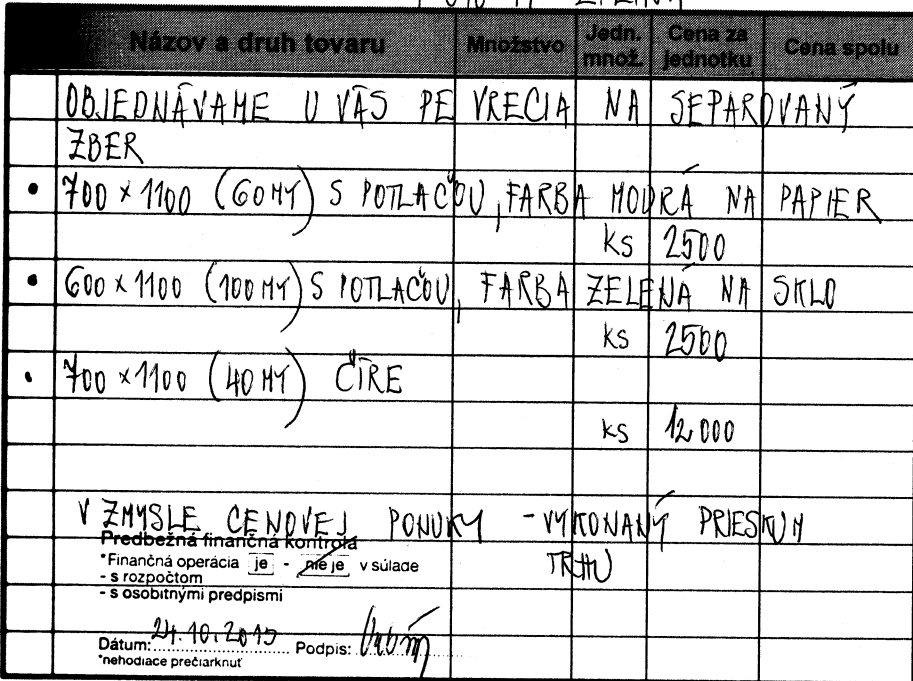 Názov a druh tovaru Množstvo Jedn. množ. Cena za jednotku Cena spolu
OBJEDNÁVAME U VÁS PE VRECIA NA SEPAROVANÝ
ZBER
• 700 x 1100 (60 MY) S POTLAČOU, FARBA MODRÁ NA PAPIER
ks 2500
• 600 x 1100 (100 MY) S POTLAČOU, FARBA ZELENÁ NA SKLO
ks 2500
• 700 x 1100 (40 MY) ČÍRE
ks 12 000
V ZMYSLE CENOVEJ PONUKY - VYKONANÝ PRIESKUM
TRHU
Predbežná finančná kontrola
*Finančná operácia je - nie je v súlade
- s rozpočtom
- s osobitnými predpismi
Dátum: 24.10.2015 Podpis:
*nehodiace prečiarknuť